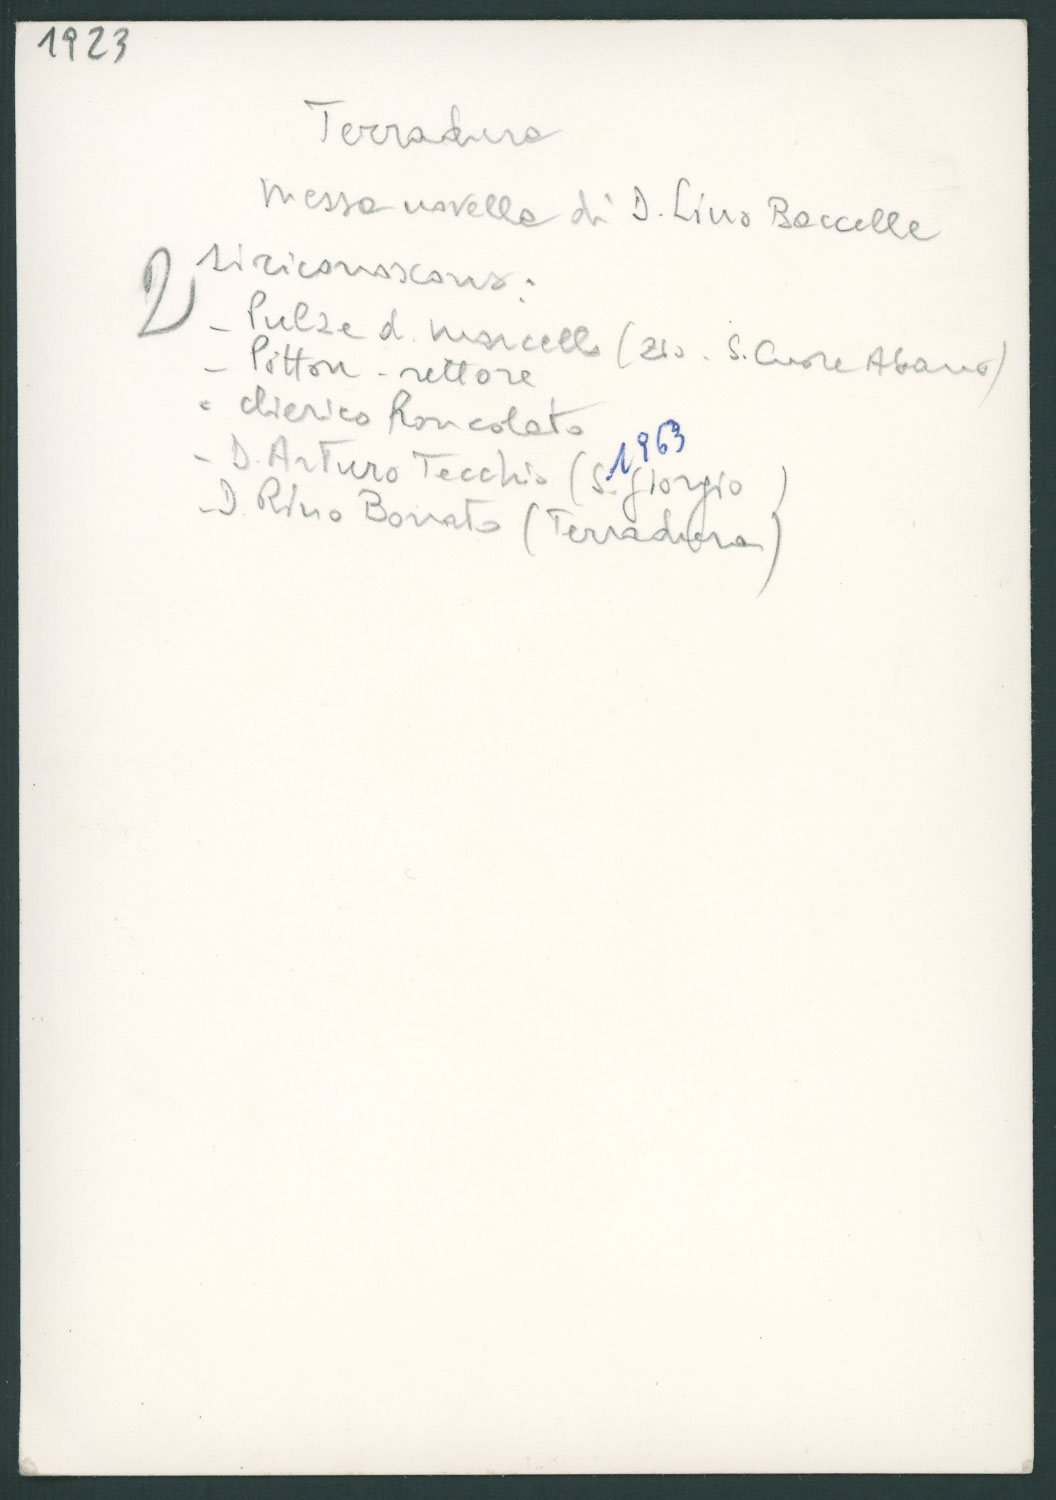 1923
Terradura
Messa novella di D. Lino Baccelle
2 si riconoscono:
- Pulze d. Marcello (zio. S. Cuore Abano)
- Pitton - rettore
- chierico Roncolato
1963
- D. Arturo Tecchio (S. Giorgio )
- D. Rino Bonato (Terradura)